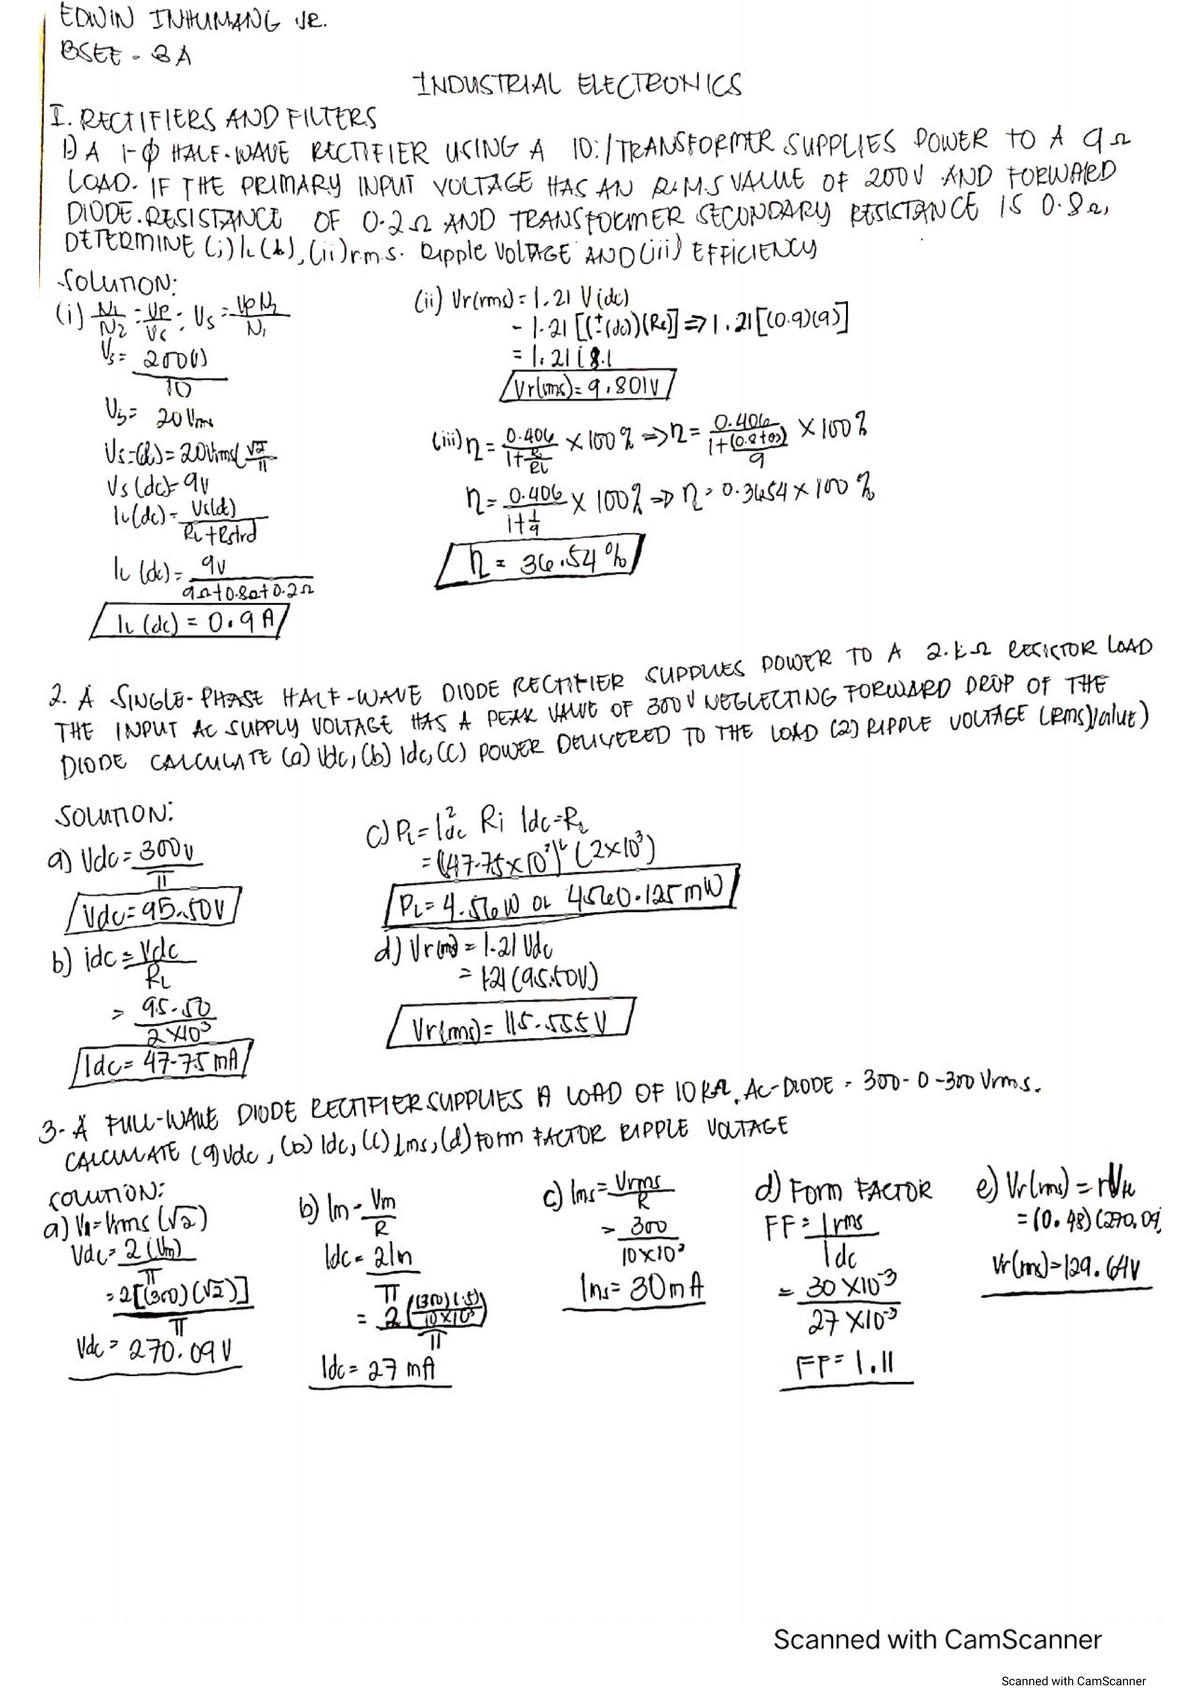 EDWIN INHUMANG JR.
BSEE - 3A
INDUSTRIAL ELECTRONICS
I. RECTIFIERS AND FILTERS
1) A 1-Φ HALF-WAVE RECTIFIER USING A 10:1 TRANSFORMER SUPPLIES POWER TO A 9Ω
LOAD. IF THE PRIMARY INPUT VOLTAGE HAS AN R.M.S VALUE OF 200V AND FORWARD
DIODE. RESISTANCE OF 0.2Ω AND TRANSFORMER SECONDARY RESISTANCE IS 0.8Ω,
DETERMINE (i) IL(dc), (ii) r.m.s. Ripple VOLTAGE AND (iii) EFFICIENCY
SOLUTION:
(i) N1/N2 = VP/VS ; VS = VP N2/N1
VS = 200(1)/10
VS = 20 Vrms
VS=(dc) = 20Vrms(√2/π
VS (dc)= 9V
IL(dc) = VS(dc)/RL+RS+rd
IL (dc) = 9V/9Ω+0.8Ω+0.2Ω
IL (dc) = 0.9 A
(ii) Vr(rms) = 1.21 V(dc)
= 1.21 [(I(dc))(RL)] ⇒ 1.21[(0.9)(9)]
= 1.21 (8.1
Vr(rms) = 9.801V
(iii) η = 0.406/1+R/RL × 100% ⇒ η = 0.406/1+(0.8+0.2)/9 × 100%
η = 0.406/1+1/9 × 100% ⇒ η = 0.3654 × 100%
η = 36.54%
2. A SINGLE-PHASE HALF-WAVE DIODE RECTIFIER SUPPLIES POWER TO A 2.kΩ RESISTOR LOAD
THE INPUT AC SUPPLY VOLTAGE HAS A PEAK VALUE OF 300V NEGLECTING FORWARD DROP OF THE
DIODE CALCULATE (a) Vdc, (b) Idc, (c) POWER DELIVERED TO THE LOAD (2) RIPPLE VOLTAGE (RMS)Value)
SOLUTION:
a) Vdc = 300V/π
Vdc = 95.50V
b) idc = Vdc/RL
= 95.50/2×10³
Idc = 47.75 mA
c) PL = I²dc Ri Idc=RL
= (47.75×10³)² (2×10³)
PL = 4.56W OR 4560.125mW
d) Vr(rms) = 1.21 Vdc
= 1.21 (95.50V)
Vr(rms) = 115.555V
3. A FULL-WAVE DIODE RECTIFIER SUPPLIES A LOAD OF 10kΩ. AC-DIODE = 300-0-300 Vrms.
CALCULATE (a) Vdc, (b) Idc, (c) Irms, (d) Form FACTOR RIPPLE VOLTAGE
SOLUTION:
a) Vm=Vrms (√2)
Vdc = 2(Vm)/π
= 2[(300)(√2)]/π
Vdc = 270.09V
b) Im = Vm/R
Idc = 2Im/π
Idc = 27 mA
c) Irms = Vrms/R
= 300/10×10³
Irms = 30mA
d) Form FACTOR
FF = Irms/Idc
= 30×10⁻³/27×10⁻³
FF = 1.11
e) Vr(rms) = rVdc
= (0.48)(270.09)
Vr(rms) = 129.64V
Scanned with CamScanner
Scanned with CamScanner